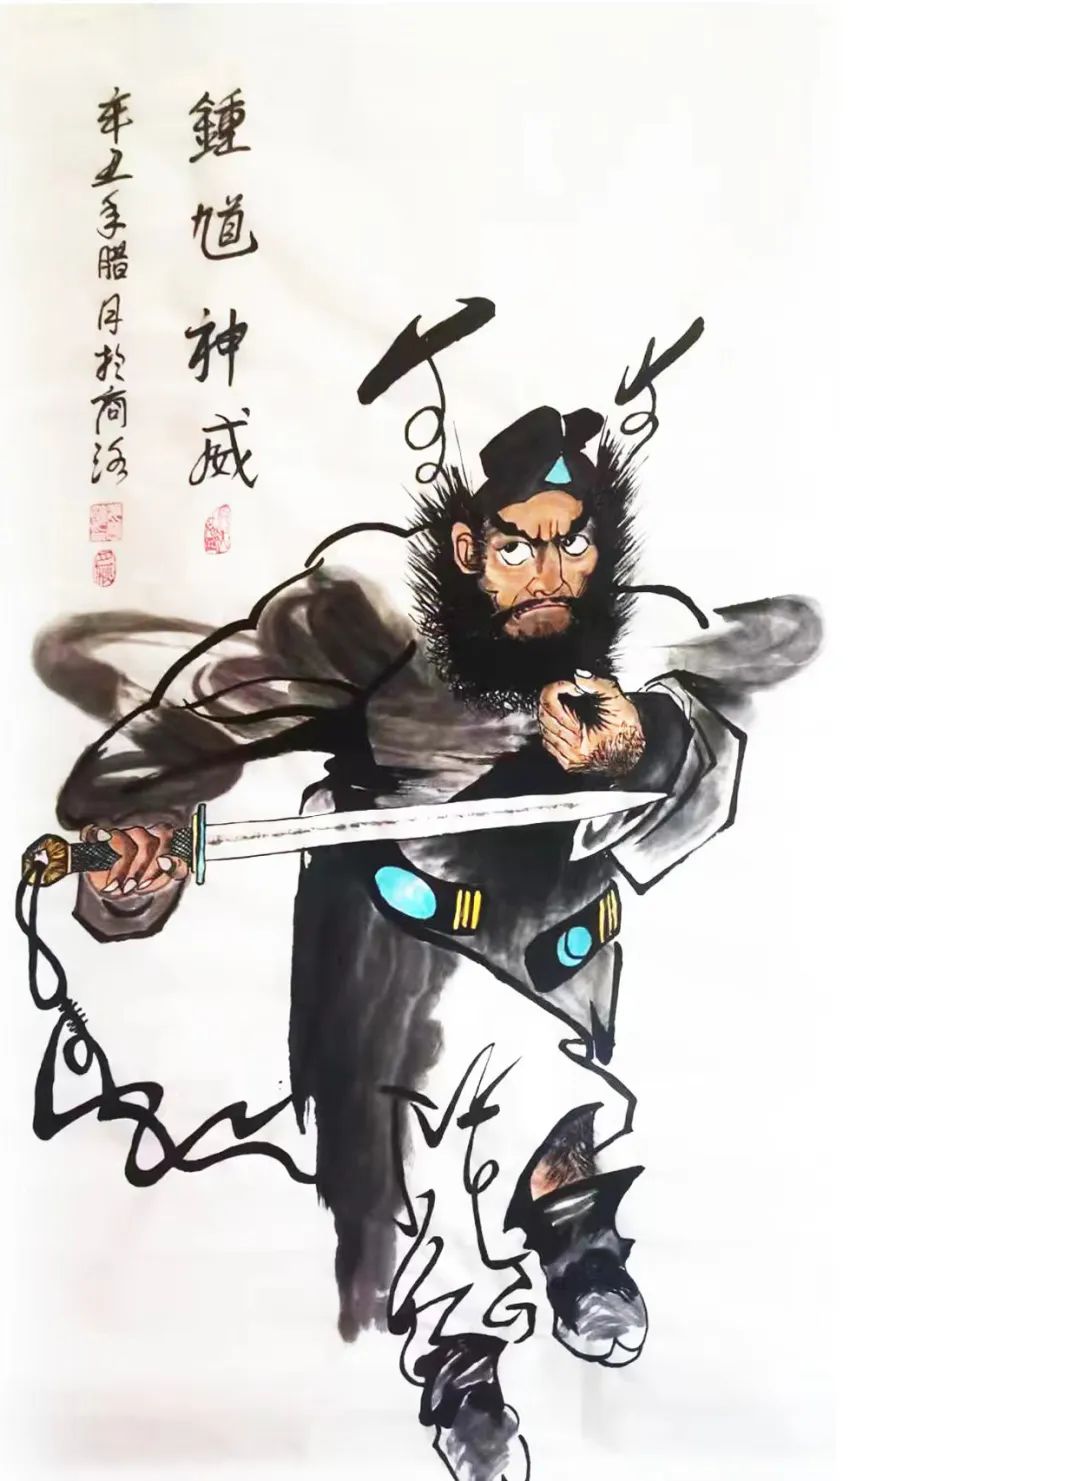 鍾馗神威
辛丑年腊月於商洛